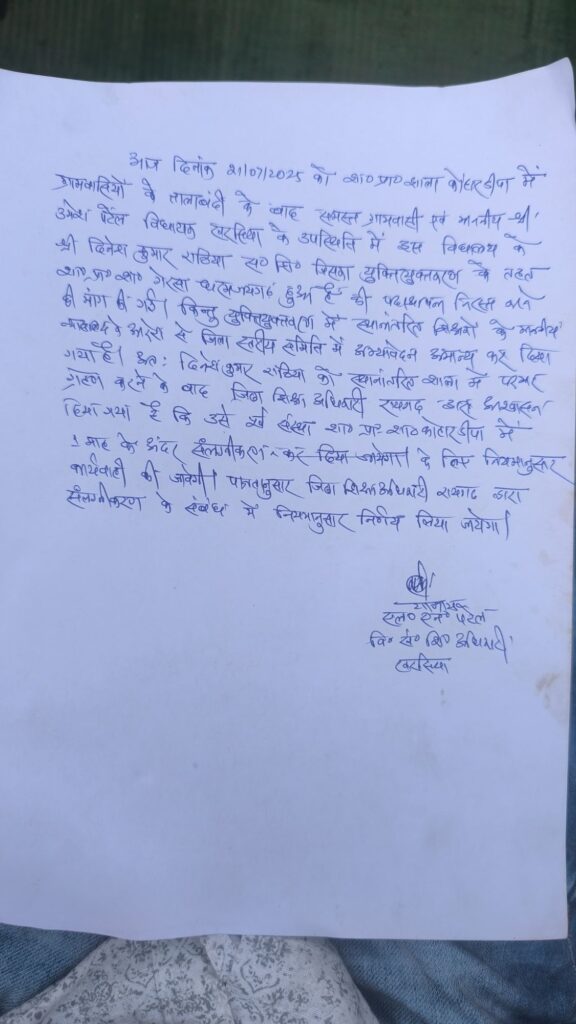 आज दिनांक 21/07/2025 को शा० प्रा० शाला कोहारडीपा में
ग्रामवासियों के तालाबंदी के बाद समस्त ग्रामवासी एवं माननीय श्री
उमेश पटेल विधायक खरसिया के उपस्थिति में इस विद्यालय के
श्री दिनेश कुमार राठिया स० शि० जिसका युक्तियुक्तकरण के तहत
शा० प्रा० शा० गेरसा हुआ है की पदस्थापना निरस्त करने
की मांग की गई। किन्तु युक्तियुक्तकरण में स्थानांतरित शिक्षकों के माननीय
आदेश से जिला स्तरीय समिति में अभ्यावेदन अमान्य कर दिया
गया है। अतः दिनेश कुमार राठिया को स्थानांतरित शाला में पदभार
ग्रहण करने के बाद जिला शिक्षा अधिकारी रायगढ़ द्वारा आश्वासन
दिया गया है कि उसे पूर्व संस्था शा० प्रा० शा० कोहारडीपा में
1 माह के अंदर संलग्नीकरण कर दिया जायेगा। के लिए नियमानुसार
कार्यवाही की जावेगी। जिला शिक्षा अधिकारी रायगढ़ द्वारा
संलग्नीकरण के संबंध में नियमानुसार निर्णय लिया जायेगा।
एल० एन० पटेल
वि० खं० शि० अधिकारी
खरसिया